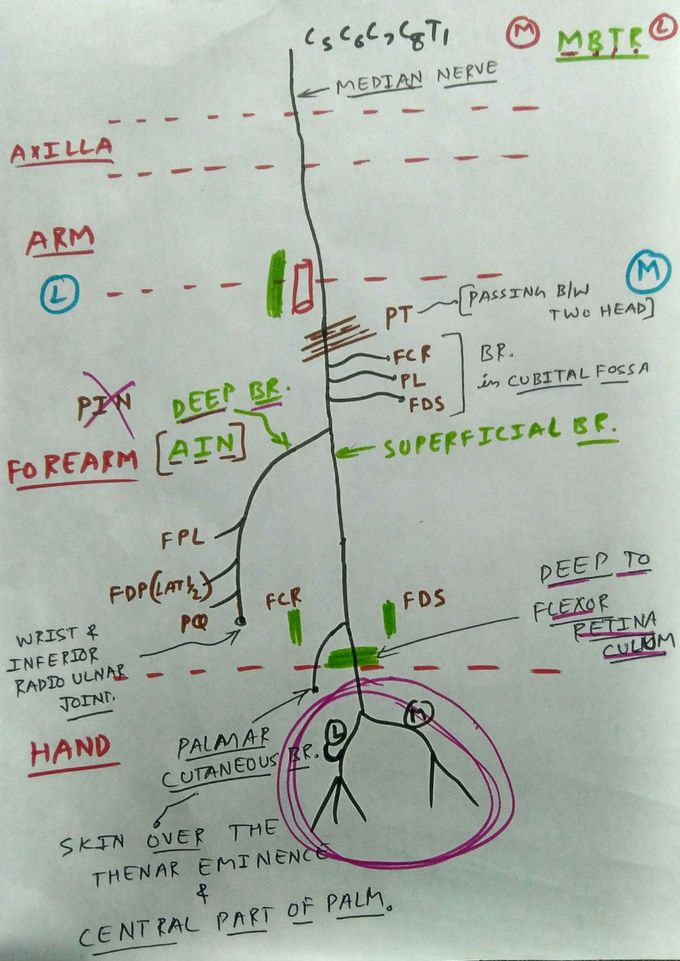 C5 C6 C7 C8 T1
M MBTR L
MEDIAN NERVE
AXILLA
ARM
L
M
PT
[PASSING B/W
TWO HEAD]
FCR
PL
FDS
BR.
in CUBITAL FOSSA
PIN
DEEP BR.
[AIN]
FOREARM
SUPERFICIAL BR.
FPL
FDP(LAT 1/2)
PQ
FCR
FDS
DEEP TO
FLEXOR
RETINA
CULUM
WRIST &
INFERIOR
RADIO ULNAR
JOINT.
HAND
L
M
PALMAR
CUTANEOUS BR.
SKIN OVER THE
THENAR EMINENCE
&
CENTRAL PART OF PALM.